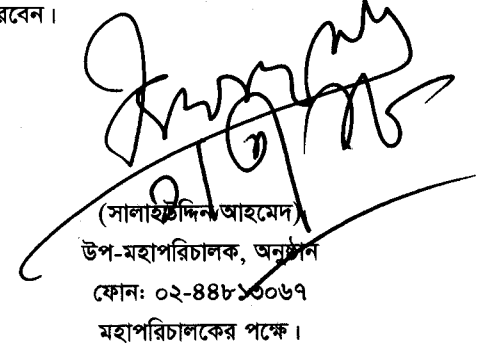 রবেন।
(সালাহউদ্দিন আহমেদ)
উপ-মহাপরিচালক, অনুষ্ঠান
ফোন: ০২-৪৪৮১৩০৬৭
মহাপরিচালকের পক্ষে।